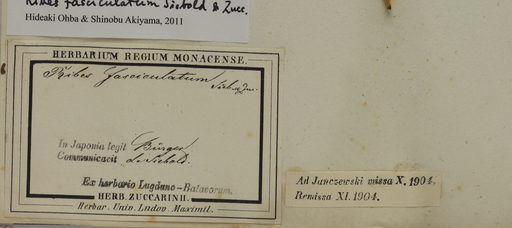 Ribes fasciculatum Siebold & Zucc.
Hideaki Ohba & Shinobu Akiyama, 2011
HERBARIUM REGIUM MONACENSE.
Ribes fasciculatum
Sieb. & Zuc.
In Japonia legit Bürger
Communicavit de Siebold.
Ex herbario Lugdano-Batavorum.
HERB. ZUCCARINII.
Herbar. Univ. Ludov. Maximil.
Ad Janczewski missa X. 1904,
Remissa XI. 1904.